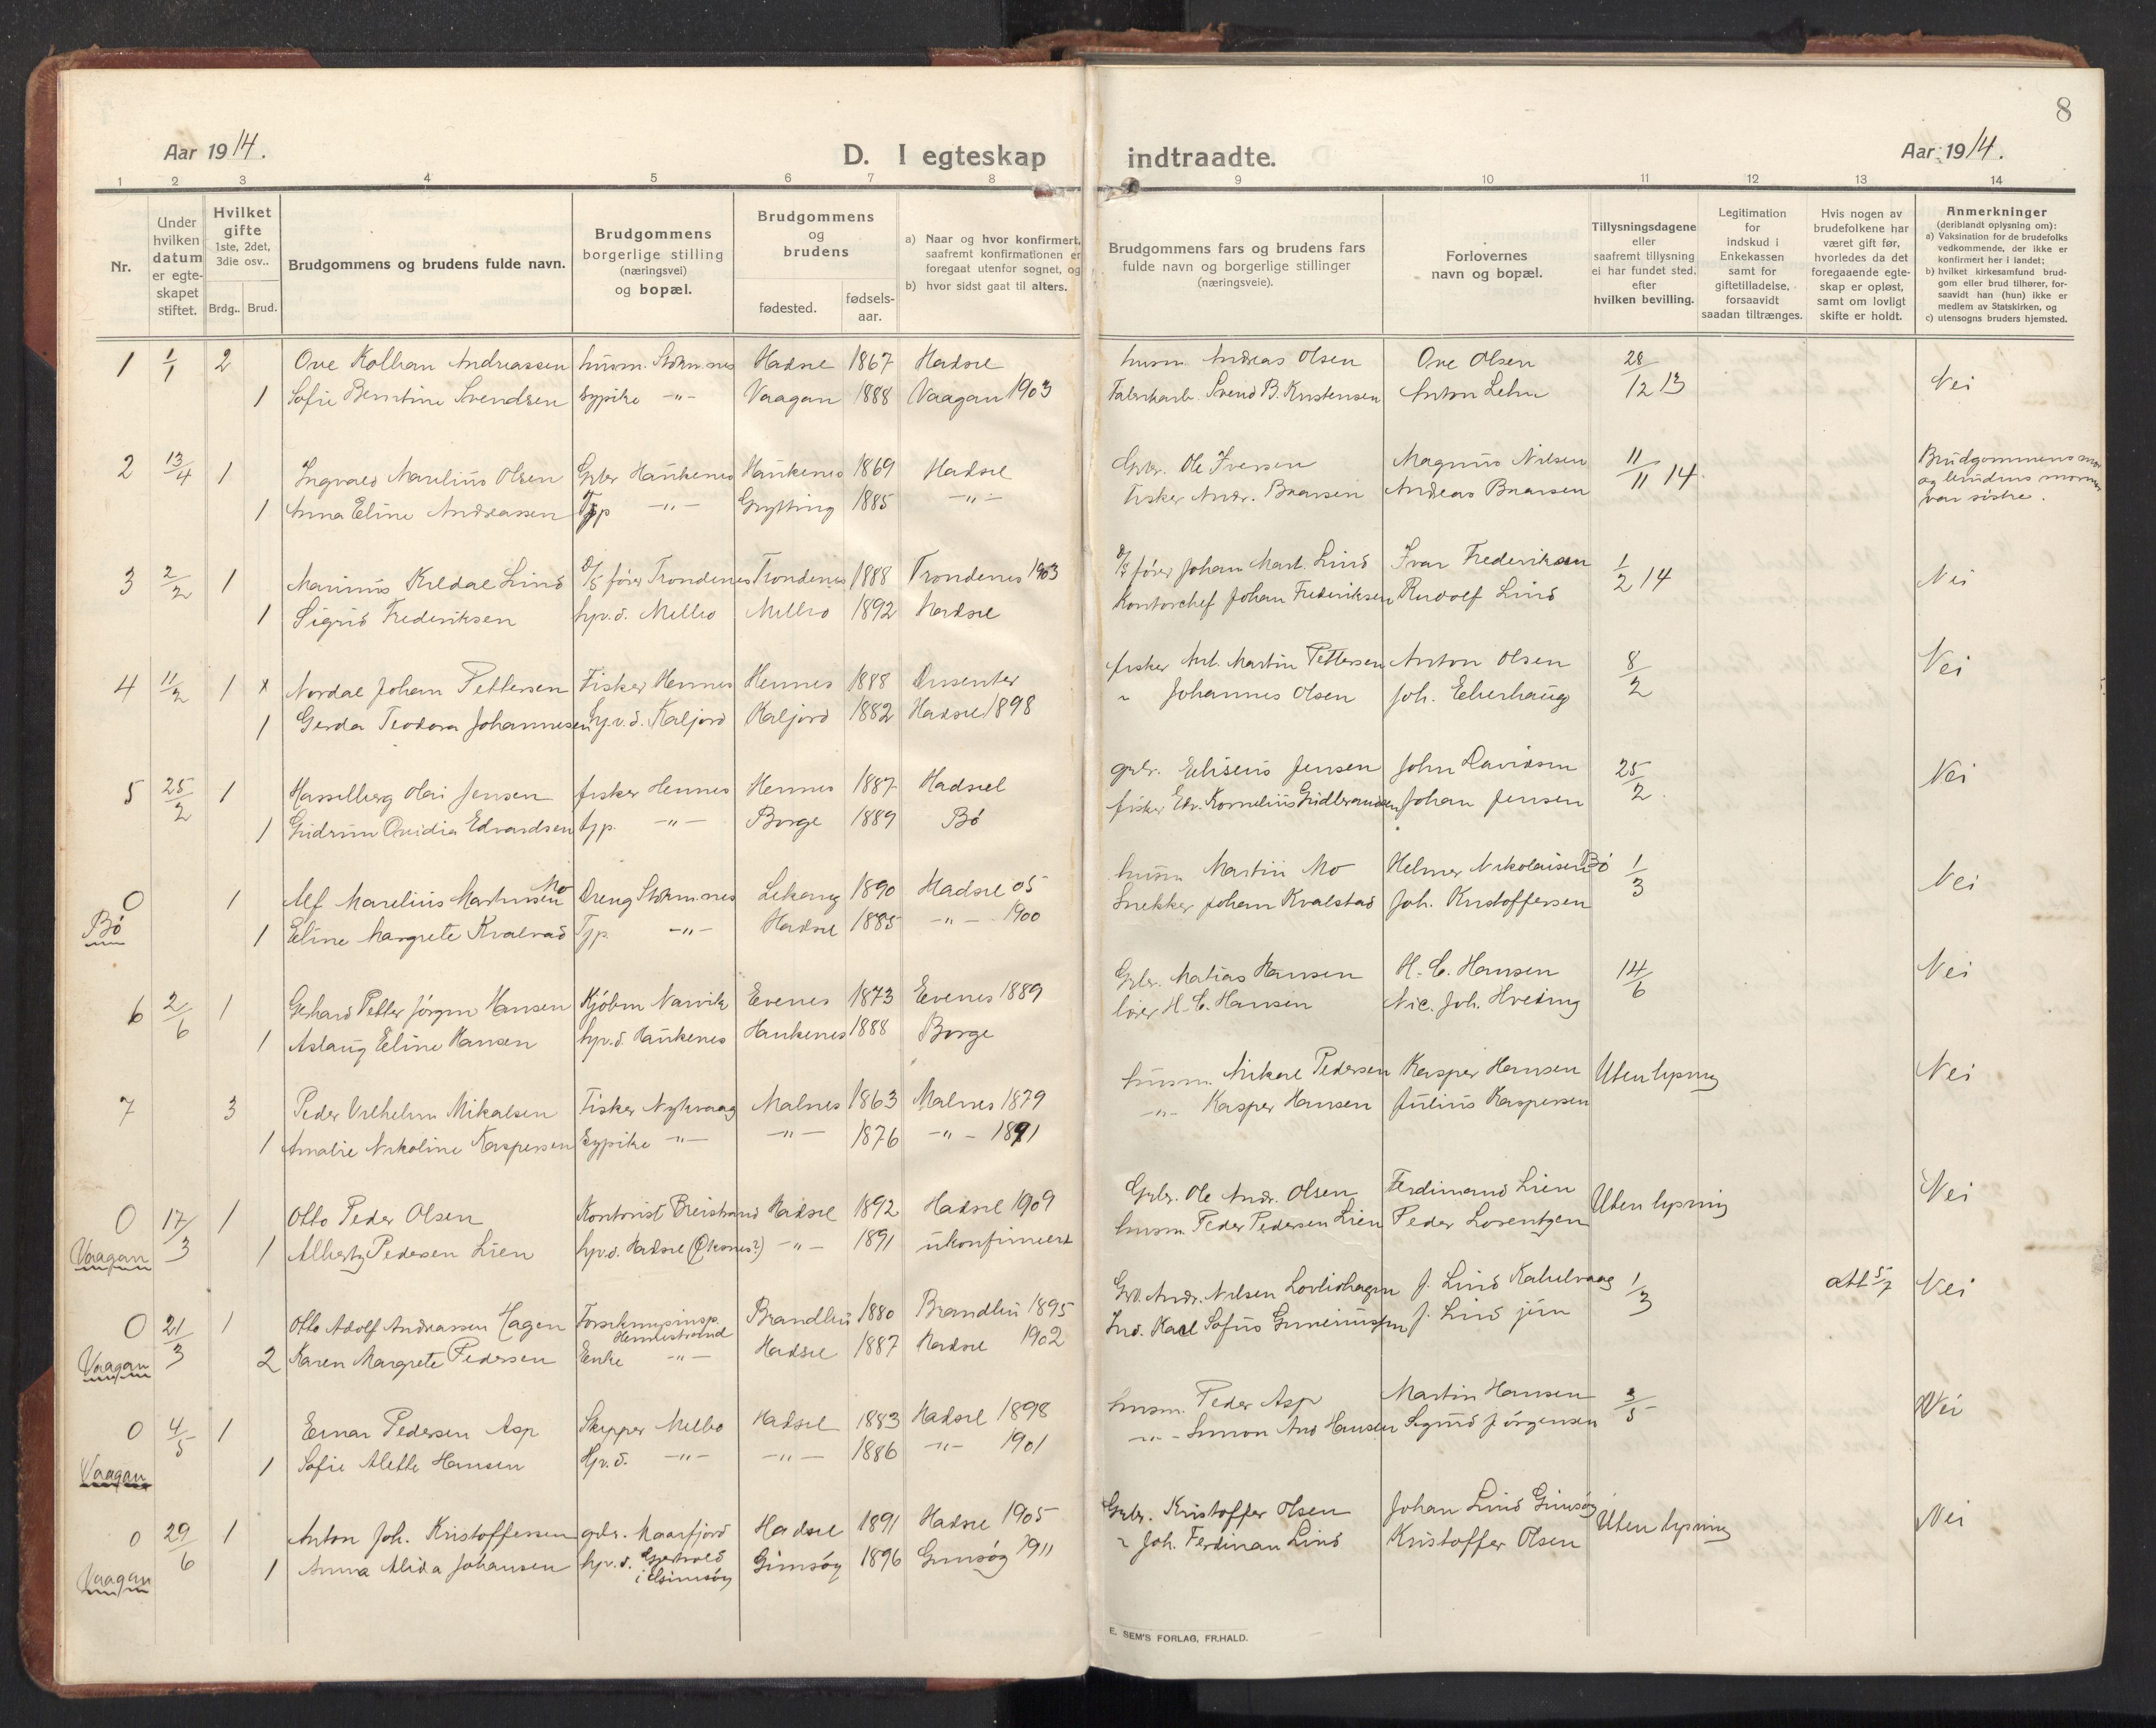 8
Aar 1914.
D. I egteskap indtraadte.
Aar 1914.
1 2 3 4 5 6 7 8 9 10 11 12 13 14
Nr.
Under hvilken datum er egteskapet stiftet.
Hvilket gifte 1ste, 2det, 3die osv..
Brdg.. Brud.
Brudgommens og brudens fulde navn.
Brudgommens borgerlige stilling (næringsvei) og bopæl.
Brudgommens og brudens
fødested.
fødsels-aar.
a) Naar og hvor konfirmert, saafremt konfirmationen er foregaat utenfor sognet, og
b) hvor sidst gaat til alters.
Brudgommens fars og brudens fars fulde navn og borgerlige stillinger (næringsveie).
Forlovernes navn og bopæl.
Tillysningsdagene eller saafremt tillysning ei har fundet sted, efter hvilken bevilling.
Legitimation for indskud i Enkekassen samt for giftetilladelse, forsaavidt saadan tiltrænges.
Hvis nogen av brudefolkene har været gift før, hvorledes da det foregaaende egteskap er opløst, samt om lovligt skifte er holdt.
Anmerkninger (deriblandt oplysning om):
a) Vaksination for de brudefolks vedkommende, der ikke er konfirmert her i landet;
b) hvilket kirkesamfund brudgom eller brud tilhører, forsaavidt han (hun) ikke er medlem av Statskirken, og
c) utensogns bruders hjemsted.
1 1/1 2 Ove Kolban Andreassen husm. Stokm.nes Hadsel 1867 Hadsel husm. Andreas Olsen Ove Olsen 28/12 13 Nei
1 Sofie Berntine Svendsen sypike -"- Vaagan 1888 Vaagan 1903 Svend B. Kristensen Anton Lehn
2 13/4 1 Ingvald Marelius Olsen Gbr Haukenes Haukenes 1869 Hadsel Gbr. Ole Iversen Magnus Nilsen 11/11 14. Brudgommens mor
1 Anna Eline Andreassen Tjp -"- Grytting 1885 -"- Fisker Andr. Baarsen Andreas Baarsen og brudens mormor
var søstre.
3 2/2 1 Marinus Kildal Lind D/S fører Trondenes Trondenes 1888 Trondenes 1903 D/S fører Johan Mart. Lind Ivar Frederiksen 1/2 14 Nei
1 Sigrid Frederiksen hp.v.d. Melbo Melbo 1892 Hadsel Kontorchef Johan Frederiksen Rudolf Lind
4 11/2 1 x Nordal Johan Pettersen Fisker Hennes Hennes 1888 Dissenter fisker Ant. Martin Pettersen Anton Olsen 8/2 Nei
1 Gerda Teodora Johannesen hp.v.d. Kaljord Kaljord 1882 Hadsel 1898 " Johannes Olsen Joh. Ekerhaug
5 25/2 1 Hasselberg Olai Jensen fisker Hennes Hennes 1887 Hadsel gbr. Eliseus Jensen John Davidsen 25/2. Nei
1 Gudrun Ovidia Edvardsen tjp. -"- Borge 1889 Bø fisker Edv. Kornelius Johan Jensen
0 1 Alf Marelius Martinsen Mo Dreng Stokm.nes Lekang 1890 Hadsel 05 husm Martin Mo Helmer Nikolaisen Bø 1/3 Nei
Bø 1 Eline Margrete Kvalstad Tjp. -"- Hadsel 1885 -"- 1900 Snekker Johan Kvalstad Joh. Kristoffersen
6 2/6 1 Gerhard Petter Jørgen Hansen Kjøbm Narvik Evenes 1873 Evenes 1889 Gbr. Matias Hansen H. C. Hansen 14/6 Nei
1 Aslaug Eline Hansen hp.v.d. Haukenes Haukenes 1888 Borge lærer H. C. Hansen Nic. Joh. Hveding
7 3 Peder Vilhelm Mikalsen Fisker Nykvaag Malnes 1863 Malnes 1879 husm. Mikal Pedersen Kasper Hansen Uten lysning Nei
1 Amalie Nikoline Kaspersen Sypike -"- -"- 1876 -"- 1891 -"- Kasper Hansen Julius Kaspersen
0 17/3 1 Otto Peder Olsen Kontorist Breistrand Hadsel 1892 Hadsel 1909 Gbr. Ole Andr. Olsen Ferdinand Lien Uten lysning Nei
Vaagan 1 Pedersen Lien hp.v.d. Hadsel (Øksnes?) -"- 1891 ukonfirmert husm. Peder Pedersen Lien Peder Lorentzen
0 21/3 1 Otto Adolf Andreassen Hagen Forsikringsinsp. Brandbu 1880 Brandbu 1895 Andr. Nilsen J. Lind Kabelvaag 1/3 att 5/7 Nei
Vaagan 2 Karen Margrete Pedersen Enke -"- Hadsel 1887 Hadsel 1902 Ind. Karl Sofus J. Lind jun
0 4/5 1 Einar Pedersen Asp Skipper Melbo Hadsel 1883 Hadsel 1898 husm. Peder Asp Martin Hansen 3/5 Nei
Vaagan 1 Sofie Alette Hansen Hp.v.d. -"- -"- 1886 -"- 1901 -"- Simon And Hansen Sigurd Jørgensen
0 29/6 1 Anton Joh. Kristoffersen gbr. Maarfjord Hadsel 1891 Hadsel 1905 Gbr. Kristoffer Olsen Johan Lind Gimsøy Uten lysning Nei
Vaagan 1 Anna Alida Johansen hp.v.d. i Gimsøy Gimsøy 1896 Gimsøy 1911 " Joh. Ferdinan Lind Kristoffer Olsen
E. SEM'S FORLAG, FR.HALD.